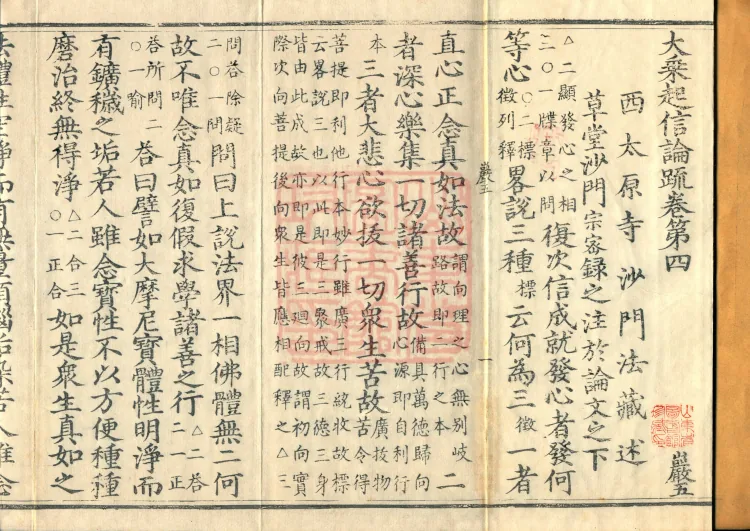 大乗起信論疏卷第四
西太原寺沙門法藏述 巖五
草堂沙門宗密録之注於論文之下
△二顯發心之相三○一牒章以問復次信成就發心者發何
等心○二標徵列釋畧説三種標云何為三徵一者
巖五 一
直心正念真如法故謂向理之心無别岐路故即二行之本二
者深心樂集一切諸善行故備具萬德歸向心源即自利行
本三者大悲心欲抜一切衆生苦故廣抜物苦令得
菩提即利他行本妙行雖廣三行統收故標云畧説三也以此即是三聚戒故三德三身
皆由此成故亦即是彼三廻向故謂初向實際次向菩提後向衆生皆應相配釋之△三
問荅除疑二○一問問曰上説法界一相佛體無二何
故不唯念真如復假求學諸善之行△二荅二一正
荅所問二○一喻荅曰譬如大摩尼寶體性明淨而
有鑛穢之垢若人雖念寶性不以方便種種
磨治終無得淨△二合三○一正合如是衆生真如之
法體性空淨而有無量煩惱垢染若人雖念